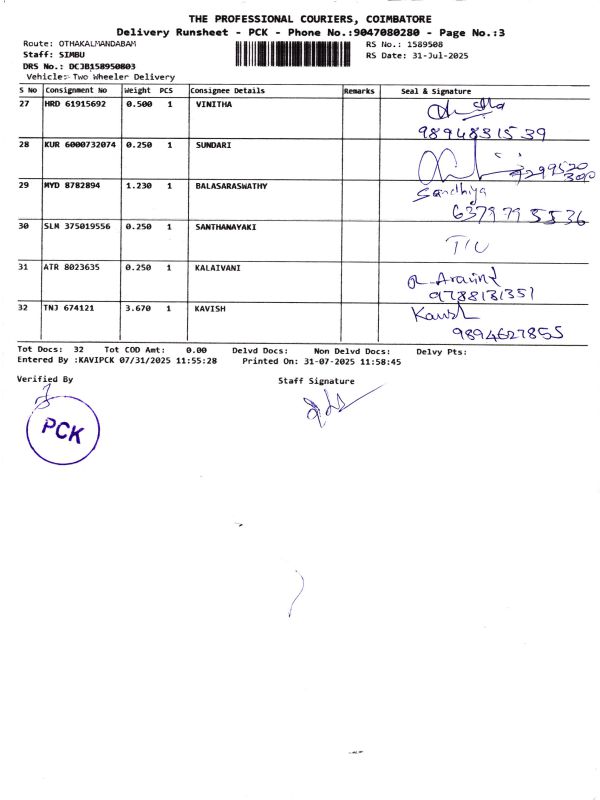 THE PROFESSIONAL COURIERS, COIMBATORE
Delivery Runsheet - PCK - Phone No.:9047080280 - Page No.:3
Route: OTHAKALMANDABAM
RS No.: 1589508
Staff: SIMBU
RS Date: 31-Jul-2025
DRS No.: DCJB158950803
Vehicle:- Two Wheeler Delivery
S No Consignment No Weight PCS Consignee Details Remarks Seal & Signature
27 HRD 61915692 0.500 1 VINITHA
9894831539
28 KUR 6000732074 0.250 1 SUNDARI
29 MYD 8782894 1.230 1 BALASARASWATHY Sandhiya
6379795536
30 SLM 375019556 0.250 1 SANTHANAYAKI
31 ATR 8023635 0.250 1 KALAIVANI R. Aravind
9788131351
32 TNJ 674121 3.670 1 KAVISH Kavish
9894627855
Tot Docs: 32 Tot COD Amt: 0.00 Delvd Docs: Non Delvd Docs: Delvy Pts:
Entered By :KAVIPCK 07/31/2025 11:55:28 Printed On: 31-07-2025 11:58:45
Verified By Staff Signature
PCK